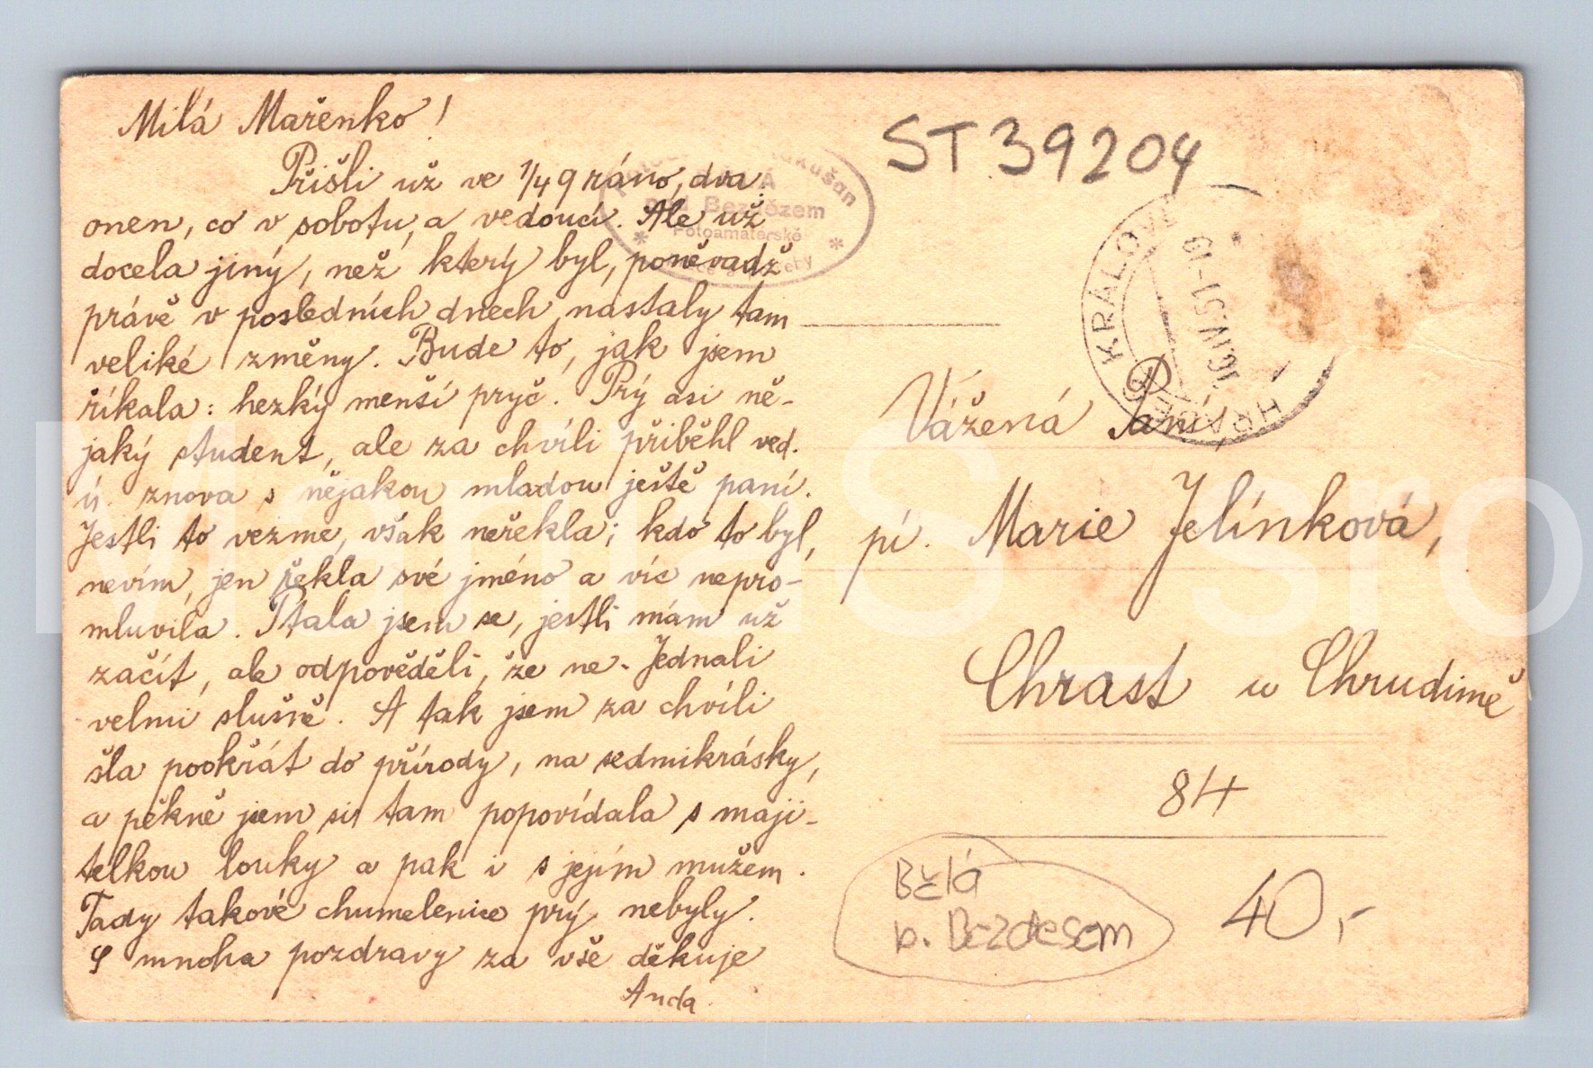 Milá Mařenko!
Přišli už ve 1/4 9 ráno, dva:
onen, co v sobotu, a vedoucí. Ale už
docela jiný, než který byl, poněvadž
právě v posledních dnech nastaly tam
veliké změny. Bude to, jak jsem
říkala: hezký menší pryč. Prý asi ně-
jaký student, ale za chvíli přiběhl ved.
ú. znova s nějakou mladou ještě paní.
Jestli to vezme, však neřekla; kdo to byl,
nevím, jen řekla své jméno a víc nepro-
mluvila. Ptala jsem se, jestli mám už
začít, ale odpověděli, že ne. Jednali
velmi slušně. A tak jsem za chvíli
šla pookřát do přírody, na sedmikrásky,
a pěkně jsem si tam popovídala s maji-
telkou louky a pak i s jejím mužem.
Tady takové chumelenice prý nebyly.
S mnoha pozdravy za vše děkuje
Anda.
pod Bezdězem
Fotoamatérské
ST 39204
HRADEC KRÁLOVÉ
16.IV.51-19
Vážená Paní
pí. Marie Jelínková,
Chrast u Chrudimě
84
Bělá
p. Bezdesem
40,-